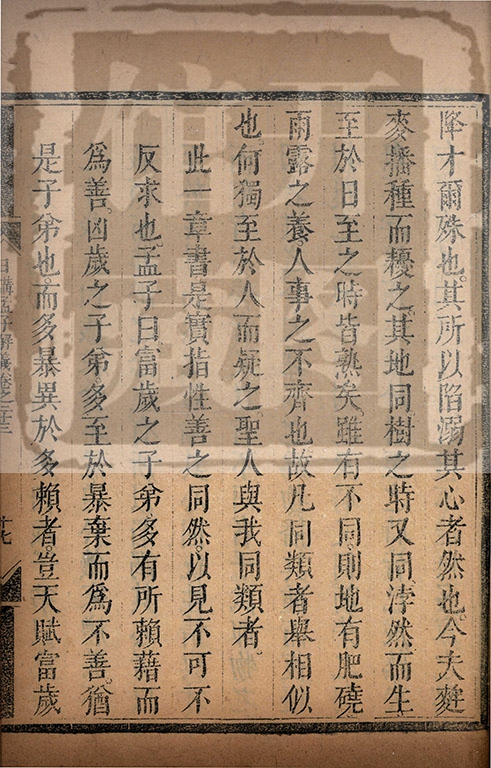 降才爾殊也其所以陷溺其心者然也今夫麰
麥播種而耰之其地同樹之時又同浡然而生
至於日至之時皆熟矣雖有不同則地有肥磽
雨露之養人事之不齊也故凡同類者舉相似
也何獨至於人而疑之聖人與我同類者
此一章書是實指性善之同然以見不可不
反求也孟子曰富歲之子弟多有所賴藉而
為善凶歲之子弟多至於暴棄而為不善猶
是子弟也而多暴異於多賴者豈天賦富歲
日講孟子解義卷之二十三
十七